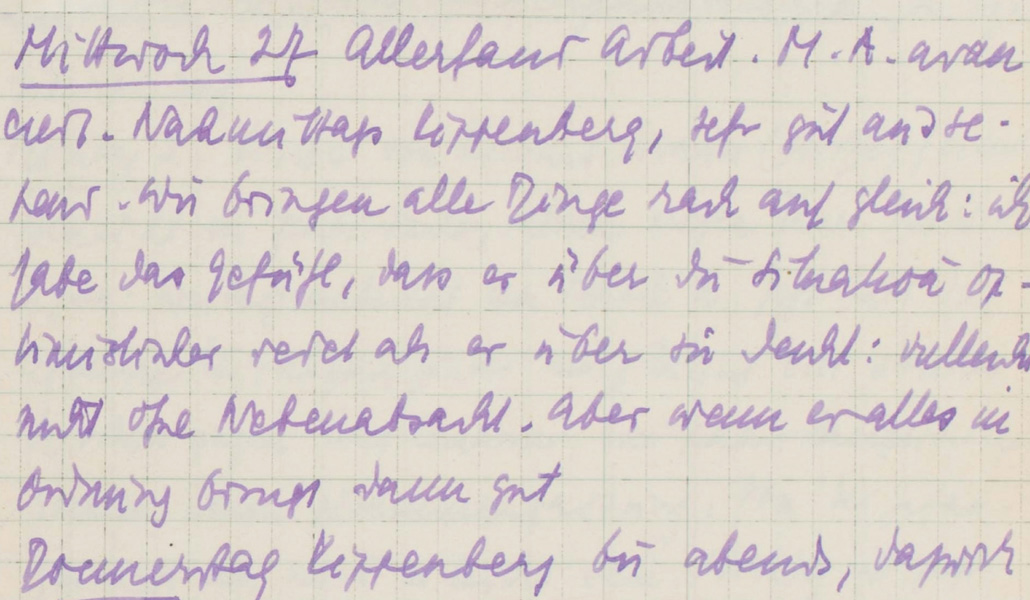 Mittwoch 27 Allerhand Arbeit. M. A. avan
ciert. Nachmittags Kippenberg, sehr gut aussе-
hend. Wir bringen alle Dinge rasch auf gleich: ich
habe das Gefühl, dass er über die Situation op-
timistischer redet als er über sie denkt: vielleicht
nicht ohne Nebenabsicht. Aber wenn er alles in
Ordnung bringt dann gut
Donnerstag Kippenberg bis abends, dazwisch